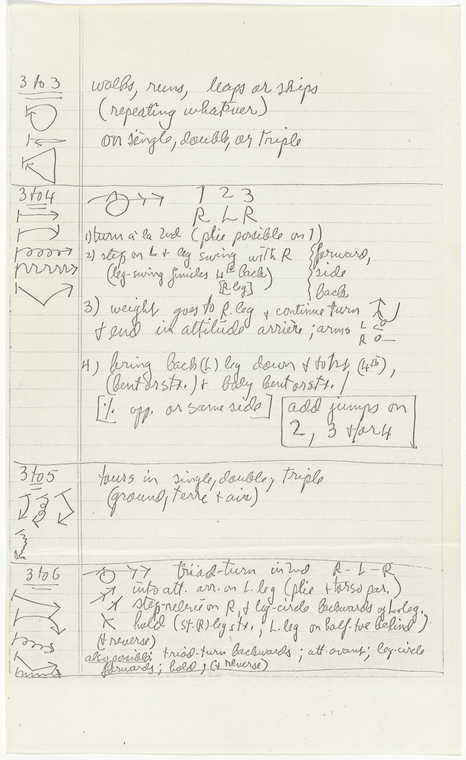 3 to 3
walks, runs, leaps or skips
(repeating whatever)
on single, double, or triple
3 to 4
1 2 3
R L R
1) turn à la 2nd (plie possible on 1)
2) step on L + leg swing with R { forward,
(leg-swing finishes 4th back) side
[R. leg] back
3) weight goes to R. leg + continue turn
+ end in attitude arrière; arms L
R
4) bring back (L) leg down + to (4th),
(bent or str.) + body bent or str. /
[ opp. or same side]
add jumps on
2, 3 +/or 4
3 to 5
tours in single, double, triple
(ground, terre + air)
3 to 6
triad-turn in 2nd R-L-R
into att. arr. on L. leg (plie + torso par.)
step-releve on R, + leg-circle backwards of L. leg.
hold (st. R) leg str., L. leg on half-toe behind)
(+ reverse)
also possible: triad-turn backwards; att. avant; leg-circle
forwards; hold, (+ reverse)